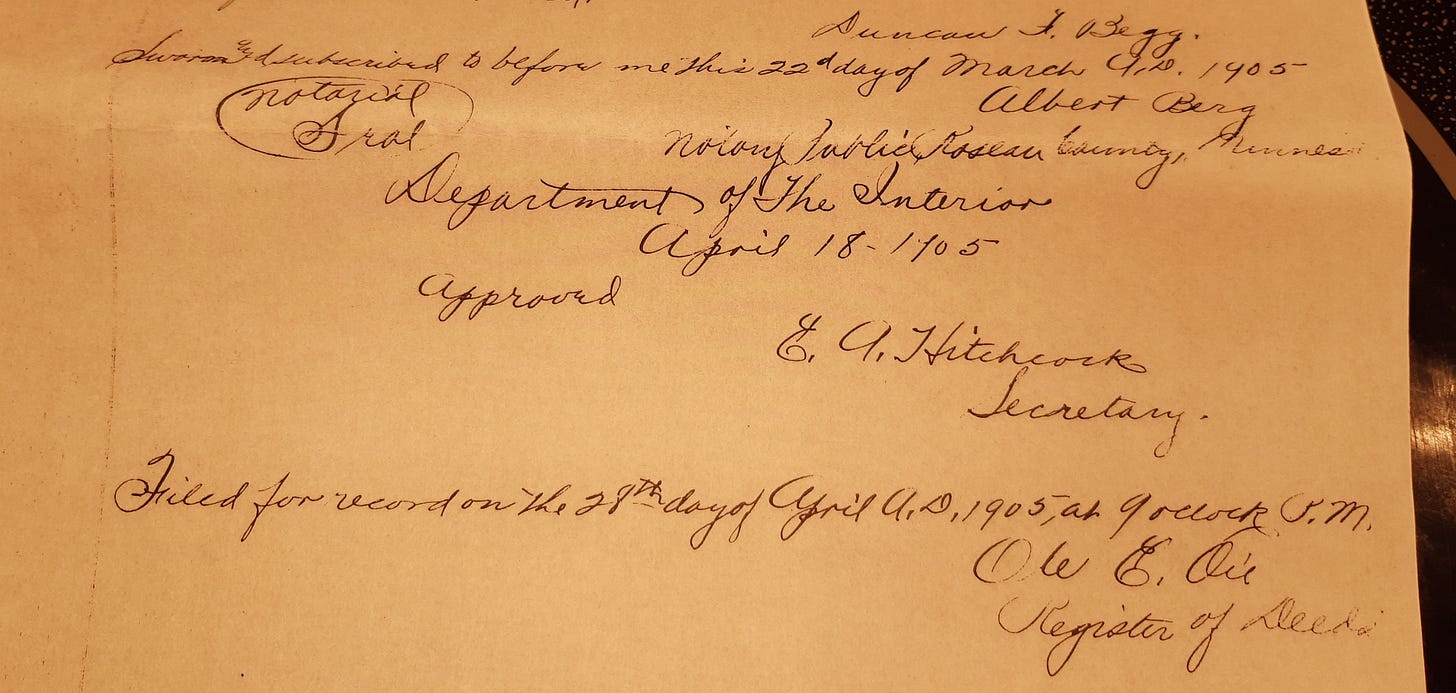 Duncan F. Begg.
Sworn and subscribed to before me this 22d day of March A.D. 1905
Notarial
Seal
Albert Berg
Notary Public, Roseau County, Minnes
Department of The Interior
April 18 - 1905
Approved
E. A. Hitchcock
Secretary.
Filed for record on the 28th day of April A.D. 1905, at 9 oclock P.M.
Ole E.
Register of Deeds